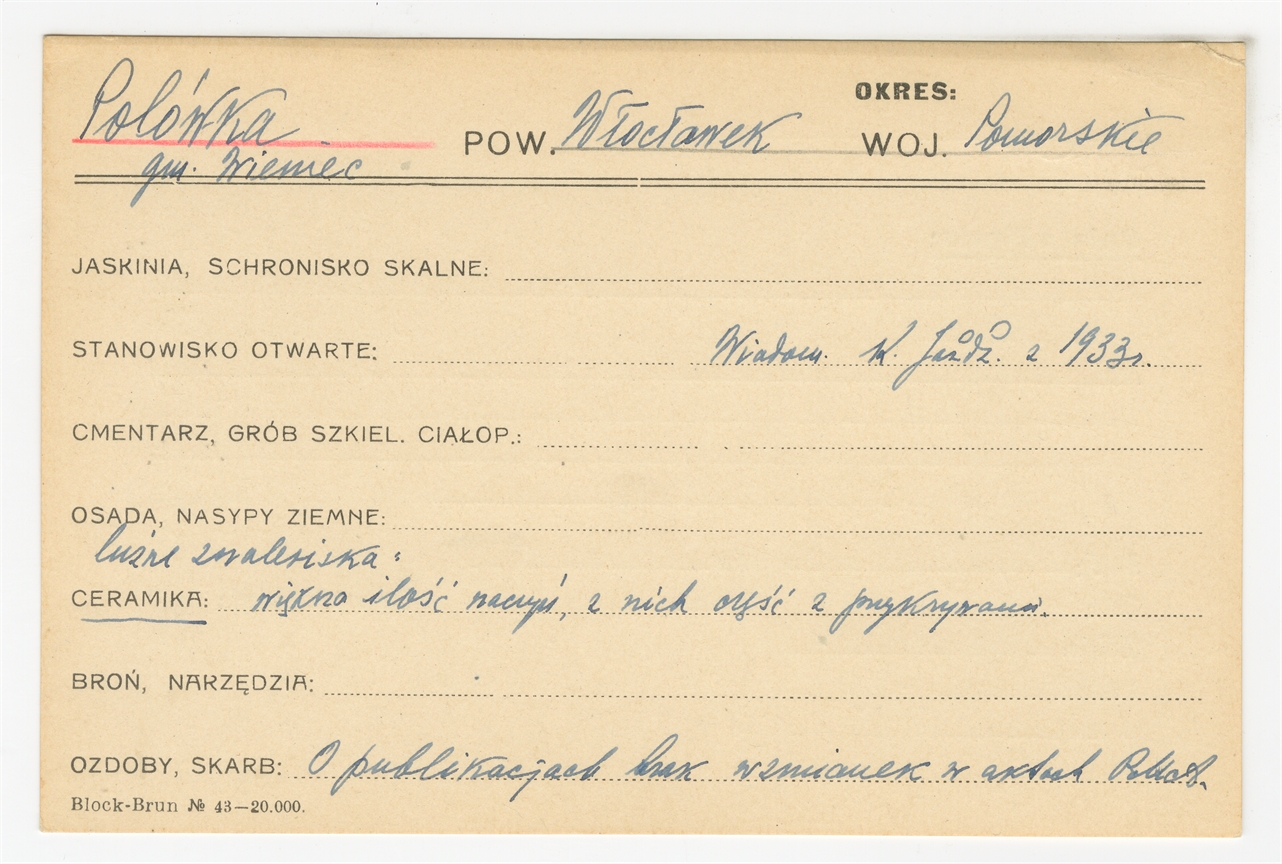 OKRES:
Polówka POW. Włocławek WOJ. Pomorskie
gm. Wieniec
JASKINIA, SCHRONISKO SKALNE:
STANOWISKO OTWARTE: Wiadom. K. Jażdż. z 1933 r.
CMENTARZ, GRÓB SZKIEL. CIAŁOP.:
OSADA, NASYPY ZIEMNE:
luźne znaleziska:
CERAMIKA: większa ilość naczyń, z nich część z przykrywami.
BROŃ, NARZĘDZIA:
OZDOBY, SKARB: O publikacjach brak wzmianek w aktach
Block-Brun № 43—20.000.